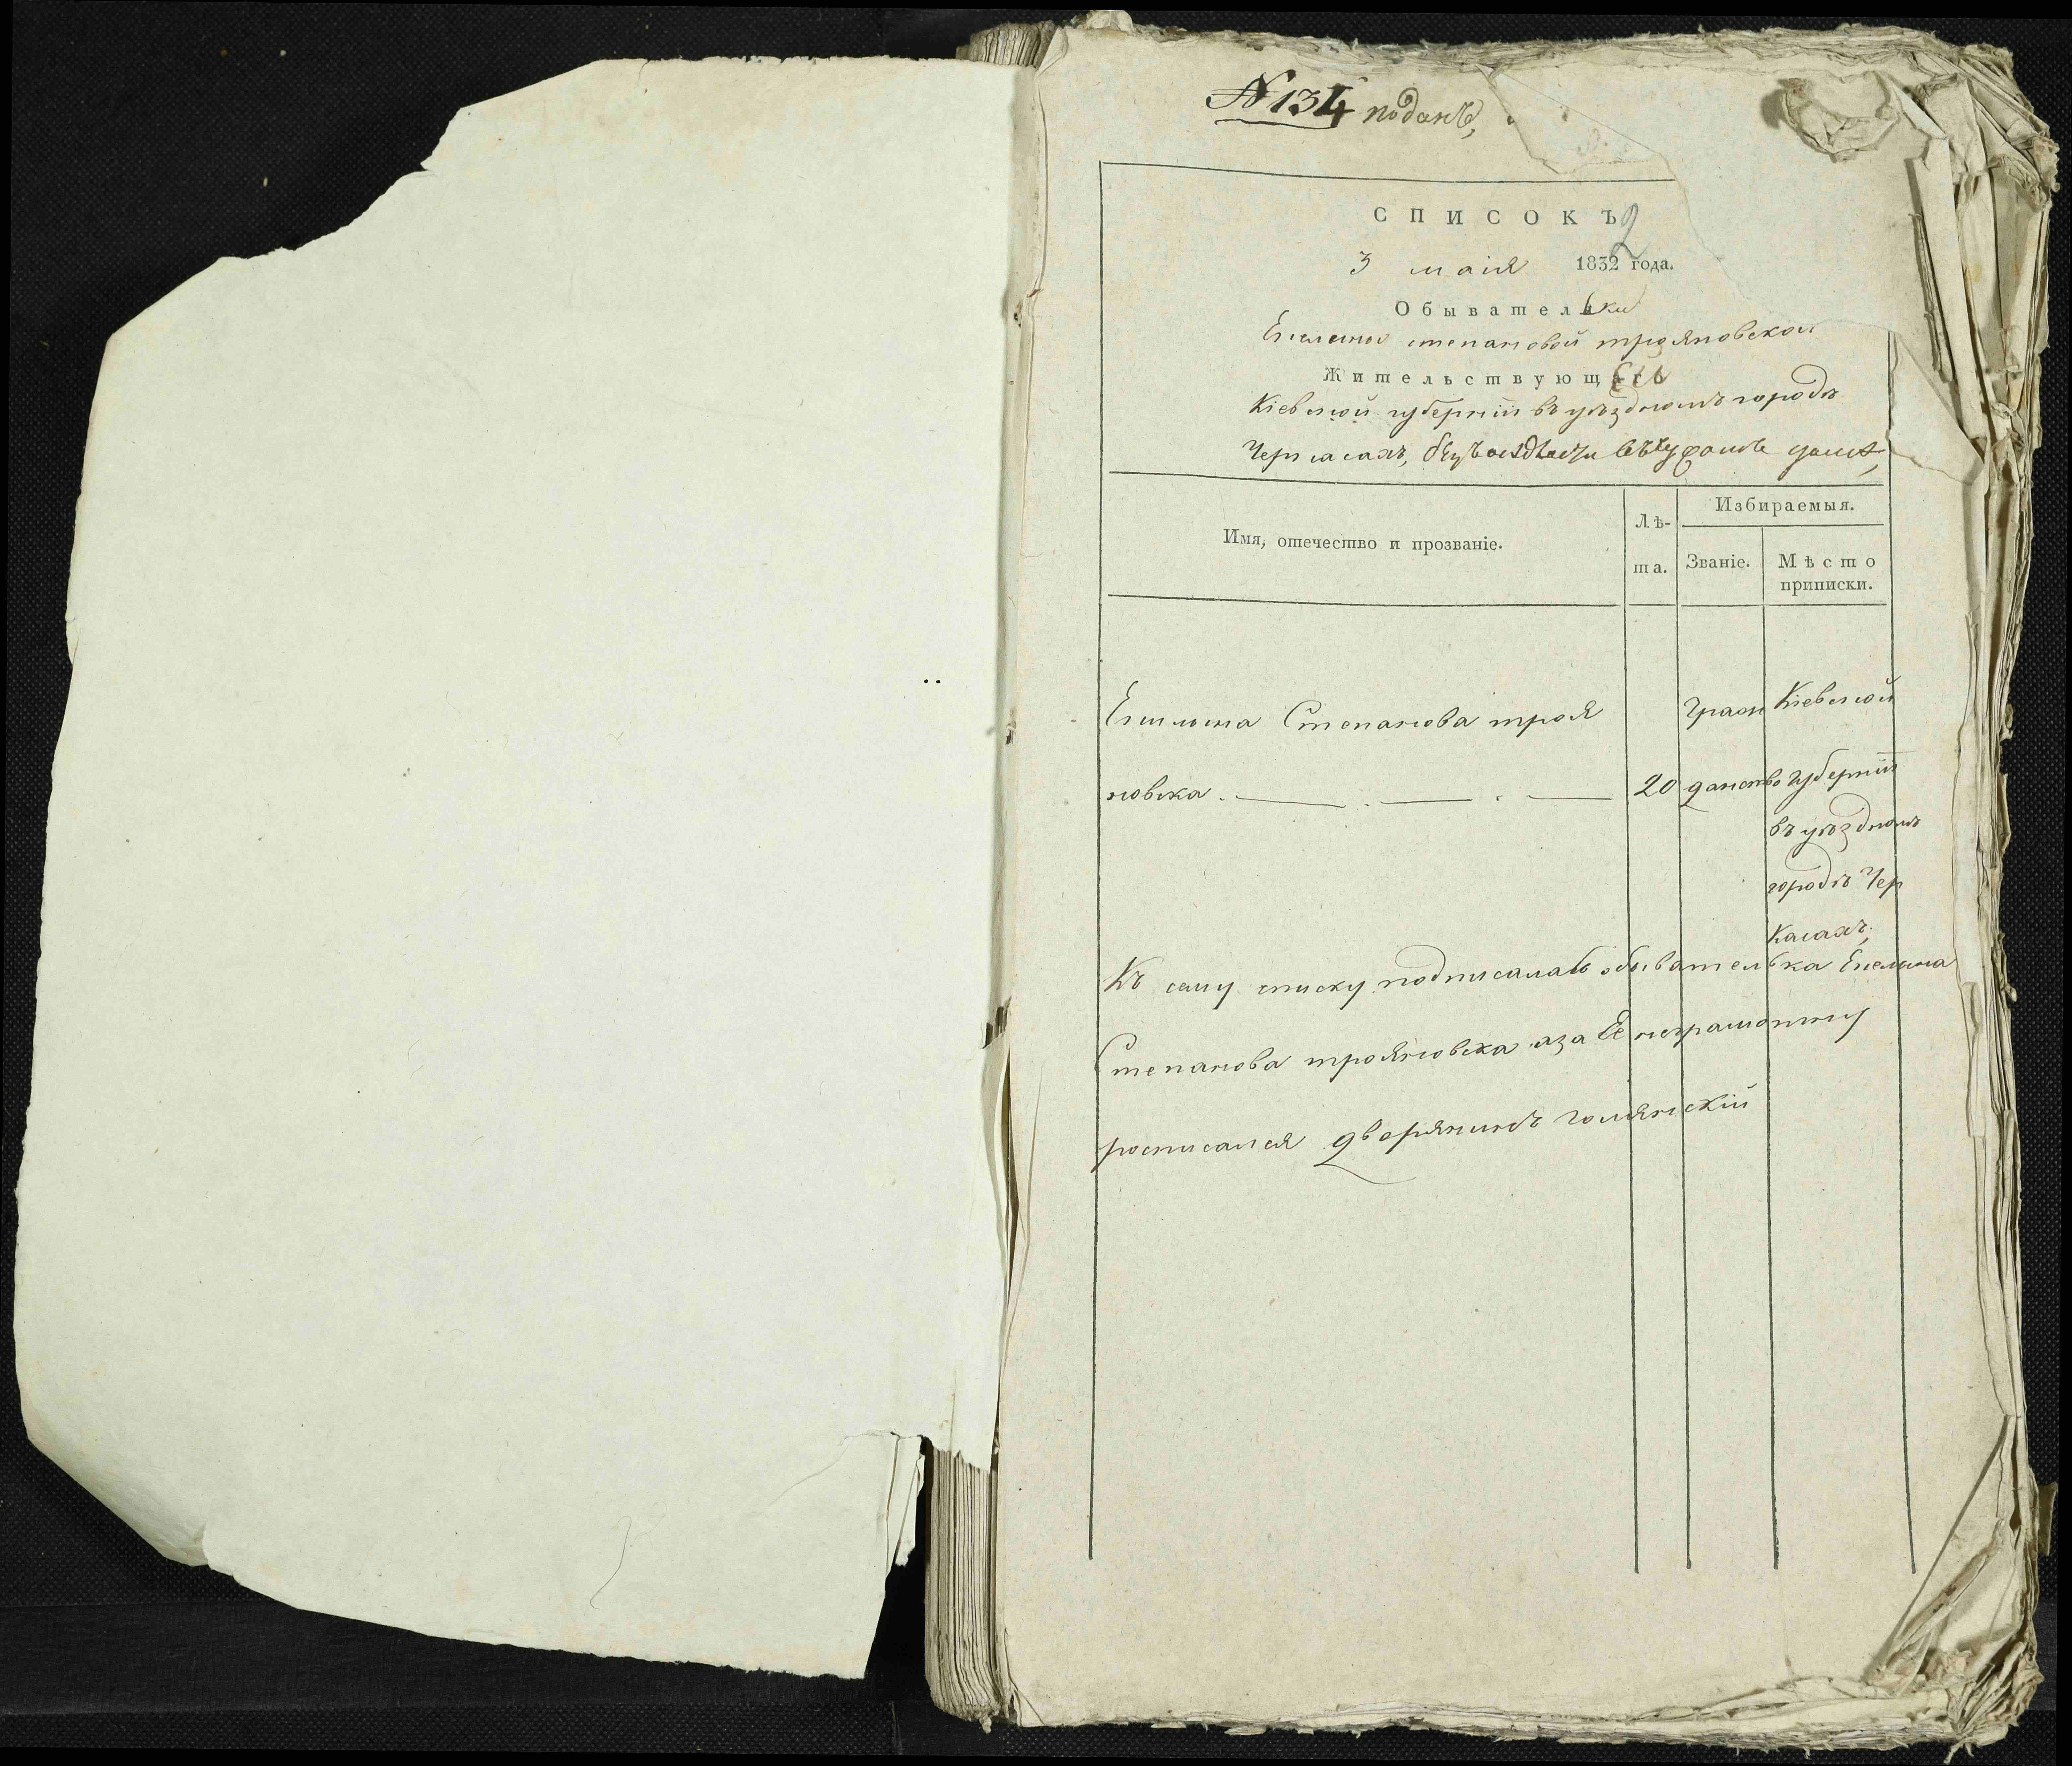 № 134 поданъ,
СПИСОКЪ
2
3 маія 1832 года.
Обывательки
степановой трояновской
Жительствующей
Кіевской губерніи въ уѣздномъ городѣ
Черкасахъ,
Имя, отечество и прозваніе.
Лѣ-
та.
Избираемыя.
Званіе.
Мѣсто
приписки.
Степанова троя
новска. 20
Граж
данство
Кіевской
губерніи
въ уѣздномъ
городѣ Чер
касахъ,
Къ сему списку подписалась обывателька
Степанова трояновска аза Ее неграмотну
росписался дворянинъ